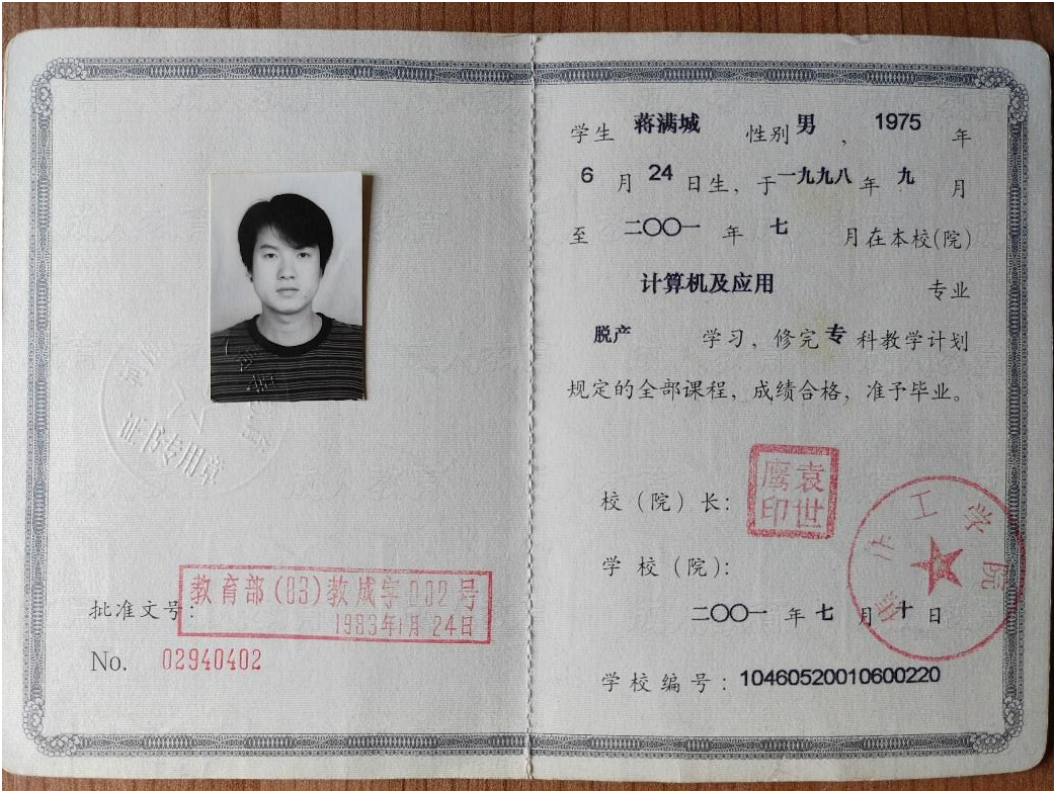 证书专用章
批准文号：
教育部(83)教成字002号
1983年1月24日
No. 02940402
学生 蒋满城 性别 男 ，1975 年
6 月 24 日生，于一九九八年 九 月
至 二〇〇一 年 七 月在本校(院)
计算机及应用 专业
脱产 学习，修完 专 科教学计划
规定的全部课程，成绩合格，准予毕业。
校（院）长：
袁世鹰印
学 校（院）：
焦作工学院
二〇〇一 年 七 月 十 日
学校编号：10460520010600220